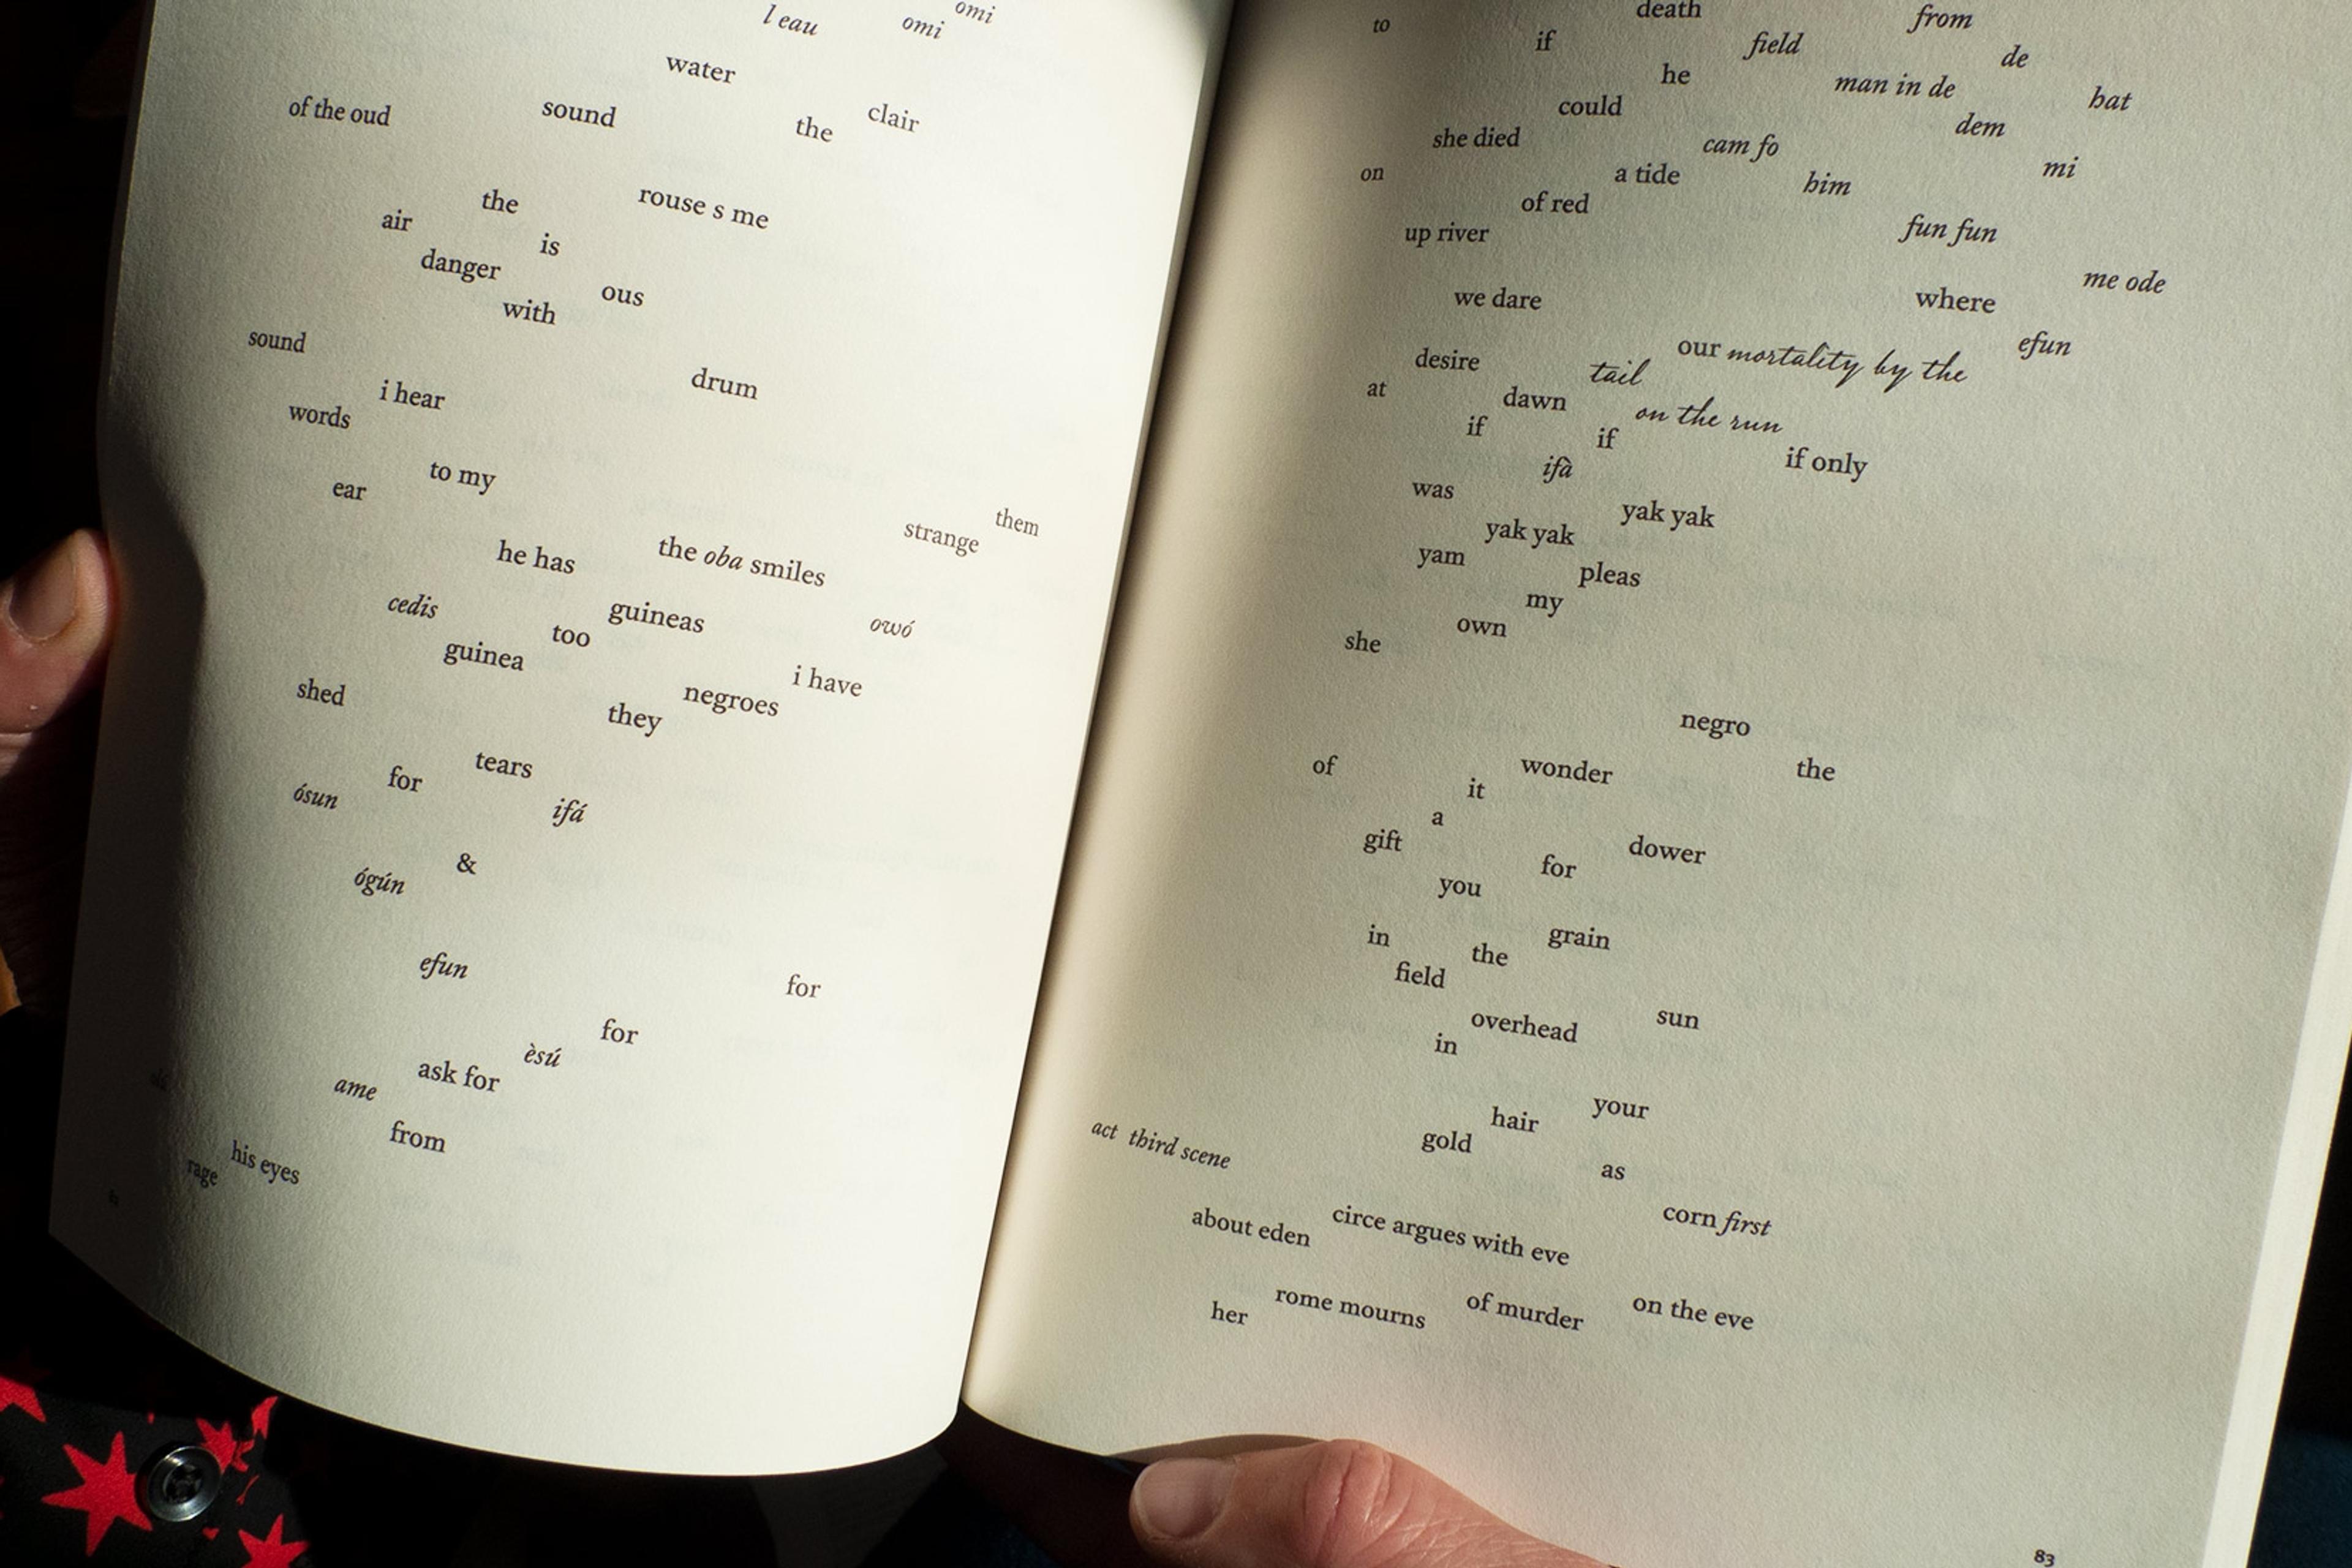 omi
l eau omi
water
clair
of the oud sound the
rouse s me
the
air is
danger ous
with
sound
drum
i hear
words
to my
ear
them
strange
the oba smiles
he has
owó
cedis guineas
too
guinea i have
negroes
shed they
tears
for
ósun ifá
&
ógún
efun for
for
èsú
ask for
ame
from
his eyes
rage
death from
to field
if de
he man in de hat
could dem
she died cam fo mi
on a tide him
of red
up river fun fun
me ode
we dare where
our mortality by the efun
desire tail
at dawn on the run
if if if only
ifà
was
yak yak yak yak
yam pleas
my
own
she
negro
wonder the
of it
a
gift dower
for
you
grain
in the
field
overhead sun
in
your
hair
gold as
corn first
act third scene
circe argues with eve
about eden
on the eve
of murder
rome mourns
her
83